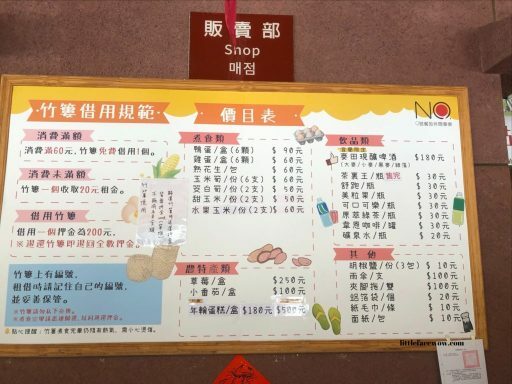 販賣部
Shop
매점
竹簍借用規範
消費滿額
消費滿60元，竹簍免費借用1個。
消費未滿額
竹簍一個收取20元租金。
借用竹簍
借用一個押金為200元，
※歸還竹簍即退回全數押金
竹簍上有編號，
租借時請記住自己的編號，
並妥善保管。
價目表
煮食類
鴨蛋/盒(6顆) $ 90元
雞蛋/盒(6顆) $ 60元
熟花生/包 $ 60元
玉米筍/份(6支) $ 60元
茭白筍/份(2支) $ 60元
甜玉米/份(2支) $ 50元
水果玉米/份(2支) $ 60元
農特產類
草莓/盒 $250元
小番茄/盒 $100元
年輪蛋糕/盒 $180元 $500元
NO.
飲品類
麥田現釀啤酒 $180元
茶裏王/瓶 售完 $ 30元
舒跑/瓶 $ 30元
美粒果/瓶 $ 30元
可口可樂/瓶 $ 30元
原萃綠茶/瓶 $ 30元
韋恩咖啡/罐 $ 30元
礦泉水/瓶 $ 20元
其他
胡椒鹽/份(3包) $ 10元
雨傘/支 $100元
夾腳拖/雙 $100元
鋁箔袋/個 $ 20元
紙毛巾/條 $ 10元
面紙/包 $ 10元
littlefacewow.com